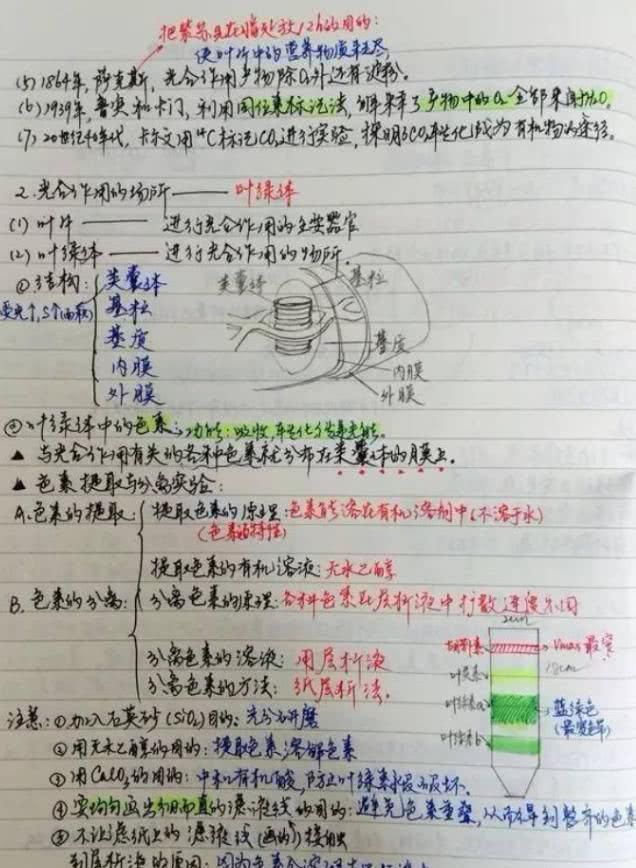 把紫苏具在暗处放12h的目的:
使叶片中的营养物质耗尽
(5) 1864年, 萨克斯, 光合作用产物除O₂外还有淀粉。
(6) 1939年, 鲁宾和卡门, 利用同位素标记法, 产物中的O₂全部来自H₂O。
(7) 20世纪40年代, 卡尔文用¹⁴C标记CO₂进行实验, 探明了CO₂转化成为有机物的途径。
2. 光合作用的场所——叶绿体
(1) 叶片——进行光合作用的主要器官
(2) 叶绿体——进行光合作用的场所。
①结构: 类囊体
基粒
受光↑, S↑(面积)
基质
内膜
外膜
类囊体
基粒
基质
内膜
外膜
②叶绿体中的色素: 功能: 吸收, 转化光能。
▲ 与光合作用有关的各种色素就分布在类囊体的膜上。
▲ 色素提取与分离实验:
A. 色素的提取: 提取色素的原理: 色素能溶在有机溶剂中(不溶于水)
(色素的特性)
提取色素的有机溶液: 无水乙醇
B. 色素的分离: 分离色素的原理: 各种色素在层析液中扩散速度不同
分离色素的溶液: 用层析液
分离色素的方法: 纸层析法。
2cm
胡萝卜素
Vmax 最窄
18cm
叶黄素
叶绿素a
蓝绿色
(最宽色带)
叶绿素b
注意: ①加入石英砂(SiO₂)目的: 充分研磨
②用无水乙醇的目的: 提取色素溶解色素
③用CaCO₃的目的: 中和有机酸, 防止叶绿素被破坏。
④要均匀画出细而直的滤液线的目的: 避免色素重叠, 从而得到整齐的色素
⑤不让滤纸上的滤液线(画的)接触
到层析液的原因: 因为色素会溶解在层析液中